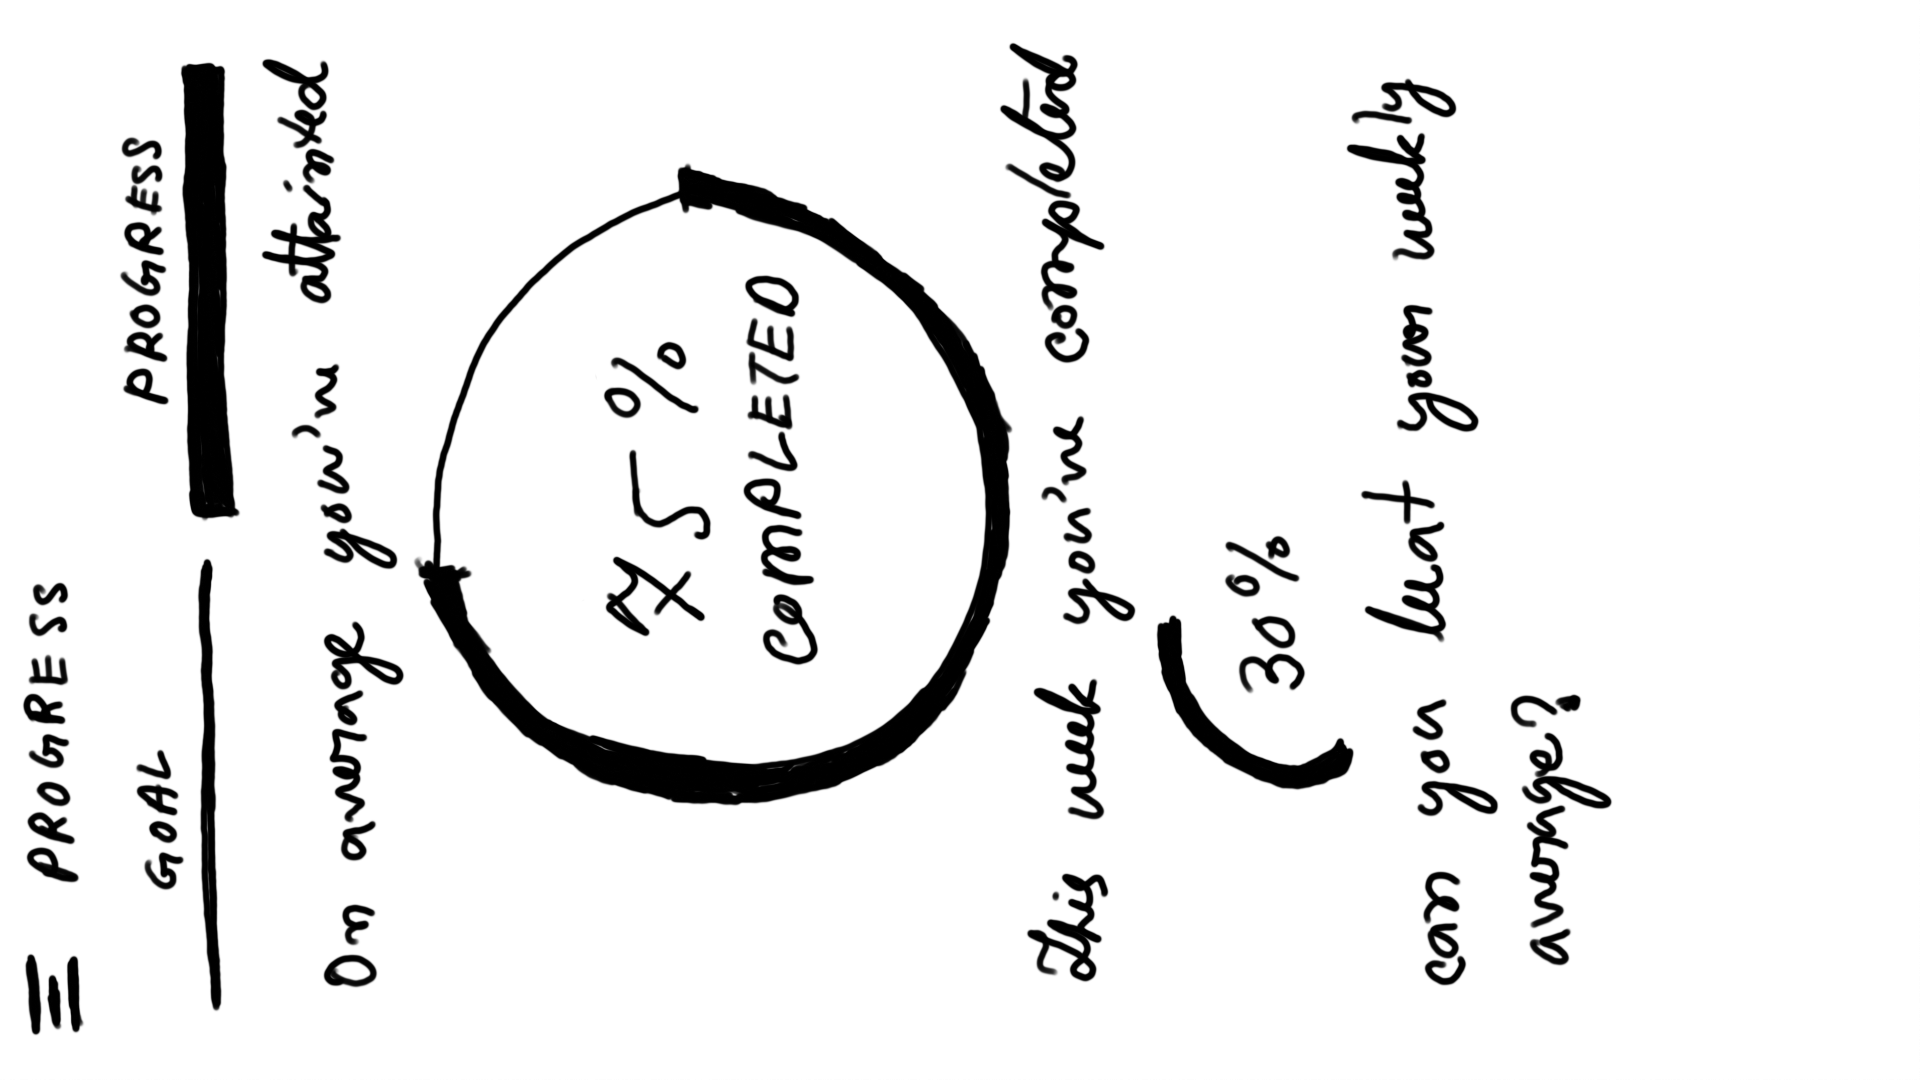 PROGRESS
GOAL PROGRESS
On average you've attained
75%
COMPLETED
This week you've completed
30%
can you beat your weekly
average?